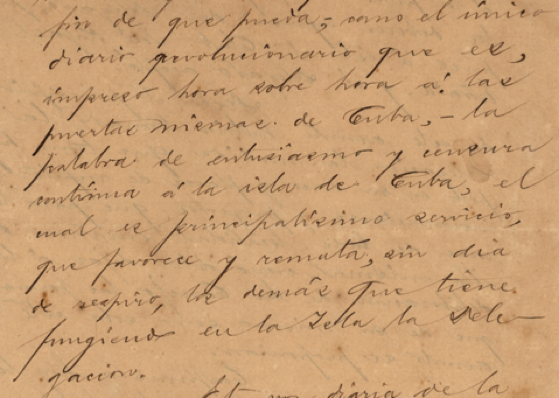 fin de que pueda, como el único
diario revolucionario que es,
impreso hora sobre hora á las
puertas mismas de Cuba, – la
palabra de entusiasmo y censura
continua á la isla de Cuba, el
cual es principalísimo servicio,
que favorece y remata, sin dia
de respiro, los demás que tiene
fungiendo en la Isla la Dele-
gacion.
diaria de la